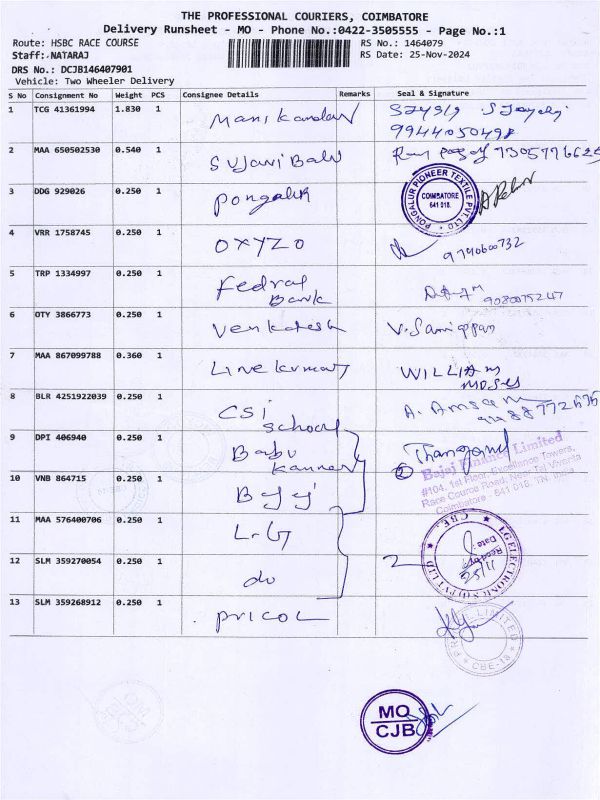 THE PROFESSIONAL COURIERS, COIMBATORE
Delivery Runsheet - MO - Phone No.:0422-3505555 - Page No.:1
Route: HSBC RACE COURSE
RS No.: 1464079
Staff:NATARAJ
RS Date: 25-Nov-2024
DRS No.: DCJB146407901
Vehicle: Two Wheeler Delivery
S No Consignment No Weight PCS Consignee Details Remarks Seal & Signature
1 TCG 41361994 1.830 1 Manikandan
9944050498
2 MAA 650502530 0.540 1 Sujani Balu
3 DDG 929026 0.250 1 Pongalur
PONGALUR PIONEER TEXTILE PVT LTD
COIMBATORE
641 018.
4 VRR 1758745 0.250 1 OXYZO 9790600732
5 TRP 1334997 0.250 1 Fedral
Bank 9080075247
6 OTY 3866773 0.250 1 Venkatesh V. Samiappan
7 MAA 867099788 0.360 1 Linekumar WILLIAM
MOSES
8 BLR 4251922039 0.250 1 CSI
School
9 DPI 406940 0.250 1 Babu
Kannan
Bajaj Finance Limited
#104, 1st Floor, Excellance Towers,
Race Course Road, Near Taj Vivanta
Coimbatore - 641 018. TN. India
10 VNB 864715 0.250 1 Bajaj
11 MAA 576400706 0.250 1 L.G
LG ELECTRONICS (I) PVT LTD CBE
Date:
25/11
12 SLM 359270054 0.250 1 do
13 SLM 359268912 0.250 1 PRICOL
LIMITED
CBE-18
MO
CJB